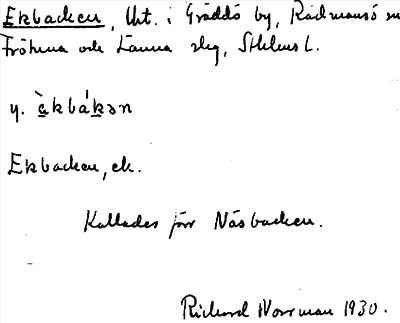 Ekbacken, Uht. i Gräddö by, Rådmansö sn
Frötuna och Länna slg, Sthlms l.
y. ὰkbákən
Ekbacken, ek.
Kallades förr Näsbacken.
Rickard Norrman 1930.